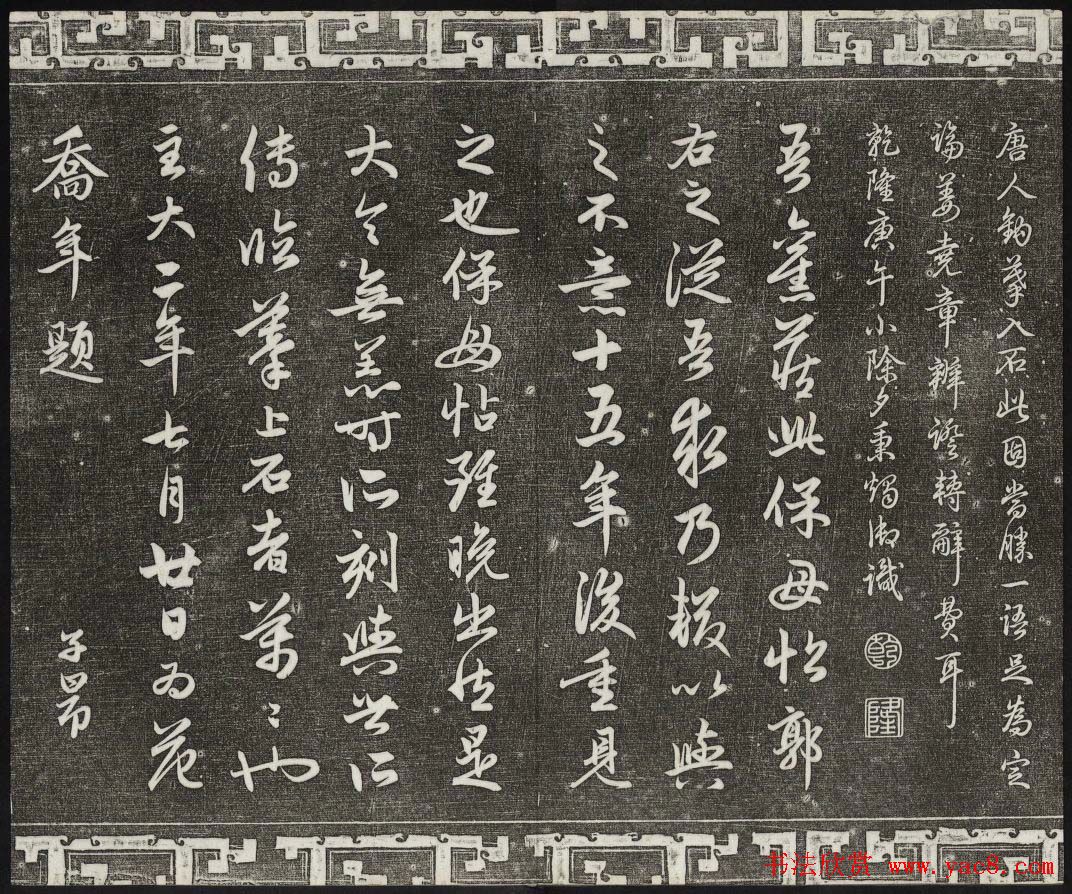 唐人鉤摹入石此固嘗勝一語足為定
論姜堯章辨證轉辭費耳
乾隆庚午小除夕秉燭御識
乾
隆
吾舊藏此保母帖郭
右之從吾求乃輟以與
之不意十五年後重見
之也保母帖雖晚出然是
大令無恙時所刻與世所
傳臨摹上石者萬萬也
至大二年七月廿日為范
喬年題
子昂
书法欣赏 www.yac8.com